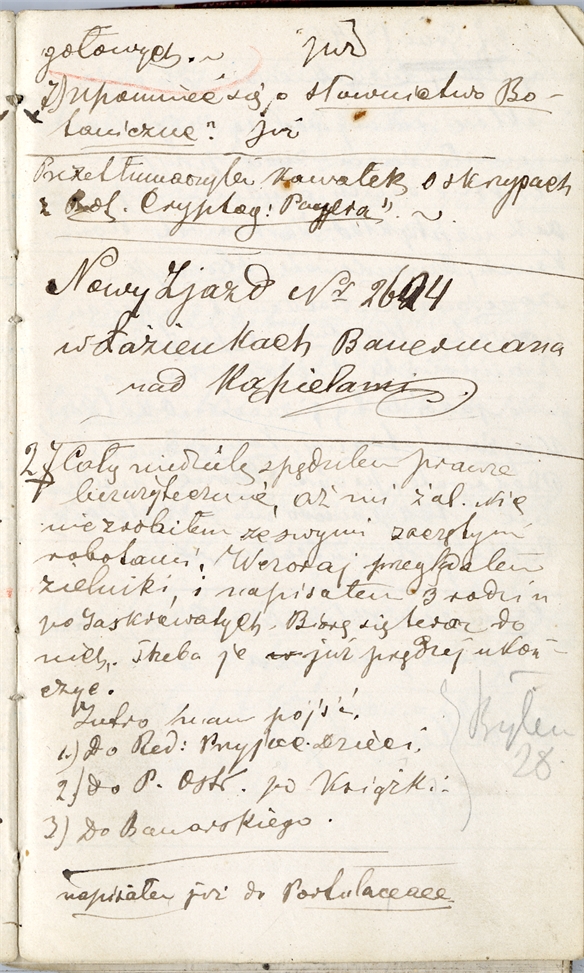 gotowych. już
7) Upomnieć się o słownictwo Bo-
taniczne? już
Przetłumaczyłem kawałek o skrzypach
z Cryptog: Payera".
Nowy Zjazd Nr 2644
w Łazienkach Bauermana
nad Kąpielami
27 Całą niedzielę spędziłem prawie
bezużytecznie, aż mi żal. Nic
nie zrobiłem ze swymi zaczętymi
robotami. Wczoraj przeglądałem
zielniki, i napisałem 3 rodzin
po Jaskrowatych. Biorę się teraz do
nich. Trzeba je już prędzej ukoń-
czyć.
Jutro mam pójść.
1.) Do Red: Przyjac. Dzieci.
2.) do P. Ostr. po Książki.
3) Do Banarskiego.
Byłem
28.
napisałem już do Portulaceae